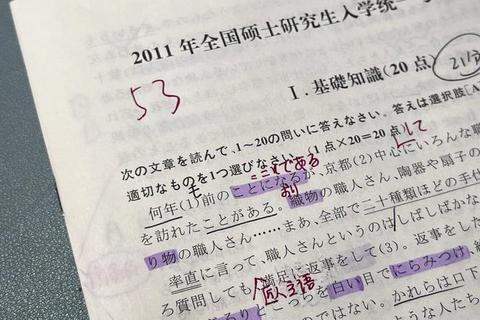 2011 年全国硕士研究生入学统一
53
I.基礎知識(20 点)
21分
次の文章を読んで、1～20の問いに答えなさい。答えは選択肢[A
適切なものを1つ選びなさい。(1 点×20=20 点)
して
である
何年(1)前のことになるが、京都(2)中心にいろんな職
も
を訪れたことがある。織物の職人さん、陶器や扇子の
り物の職人さん……まあ、全部で二十種類ほどの手仕
率直に言って、職人さんというのはしばしばかな
ろ質問しても、満足に返事をして(3)。返事をした
匠人主语
こっちを白い目でにらみつけ、
のではない。かれらは口下
ような人たち